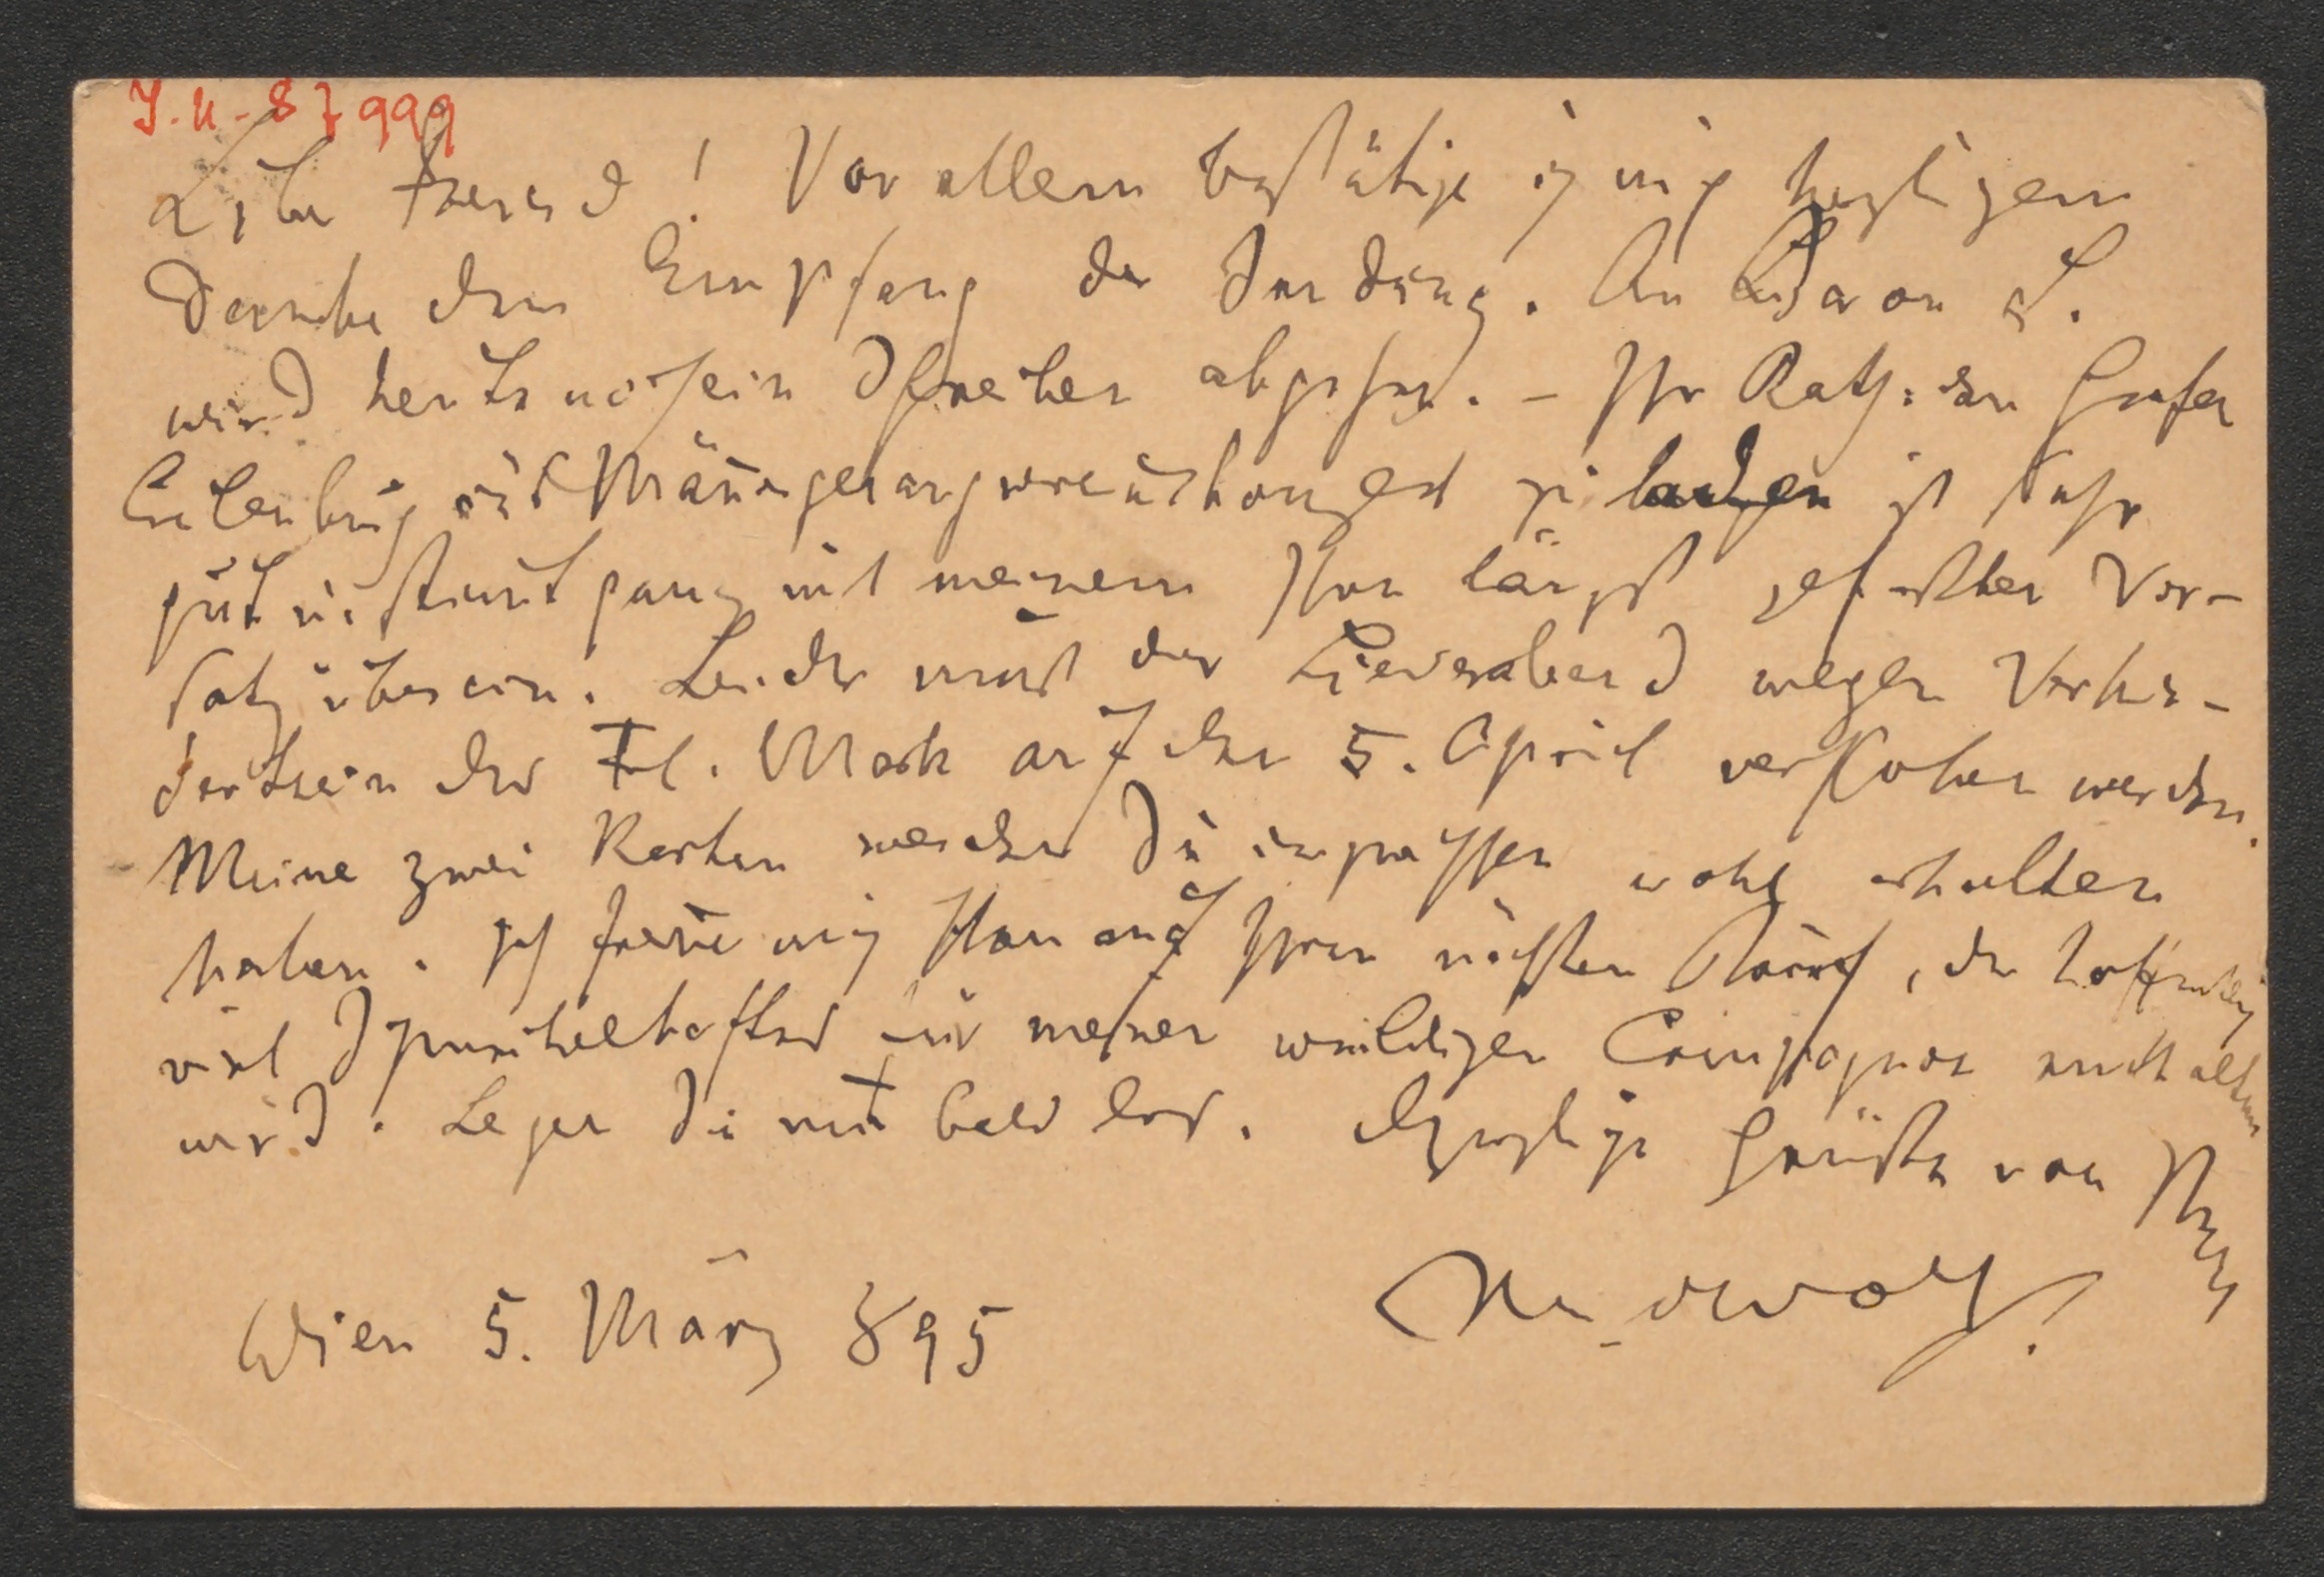 I.N. 87999
Lieber Freund! Vor allem bestätige ich mit herzlichem
Danke den Empfang der Sendung. An Baron L.
wird heute noch ein Schreiben abgehen. – Ihr Rath: den Grafen
Eulenburg mit Männergesangvereinskonzert zu laden ist sehr
gut u. stimmt ganz mit meinem schon längst gefaßten Vor-
satz überein. Leider muß der Liederabend wegen Verhin-
dertsein der Frl. Mark auf den 5. April verschoben werden.
Meine zwei Karten werden Sie inzwischen wohl erhalten
haben. Ich freue mich schon auf Ihren nächsten, der hoffentlich
viel Ersprießliches für meinen Compagnon enthalten
wird. Legen Sie nur bald los. Herzliche Grüße von Ihrem
Wien 5. März 895
Hugo Wolf